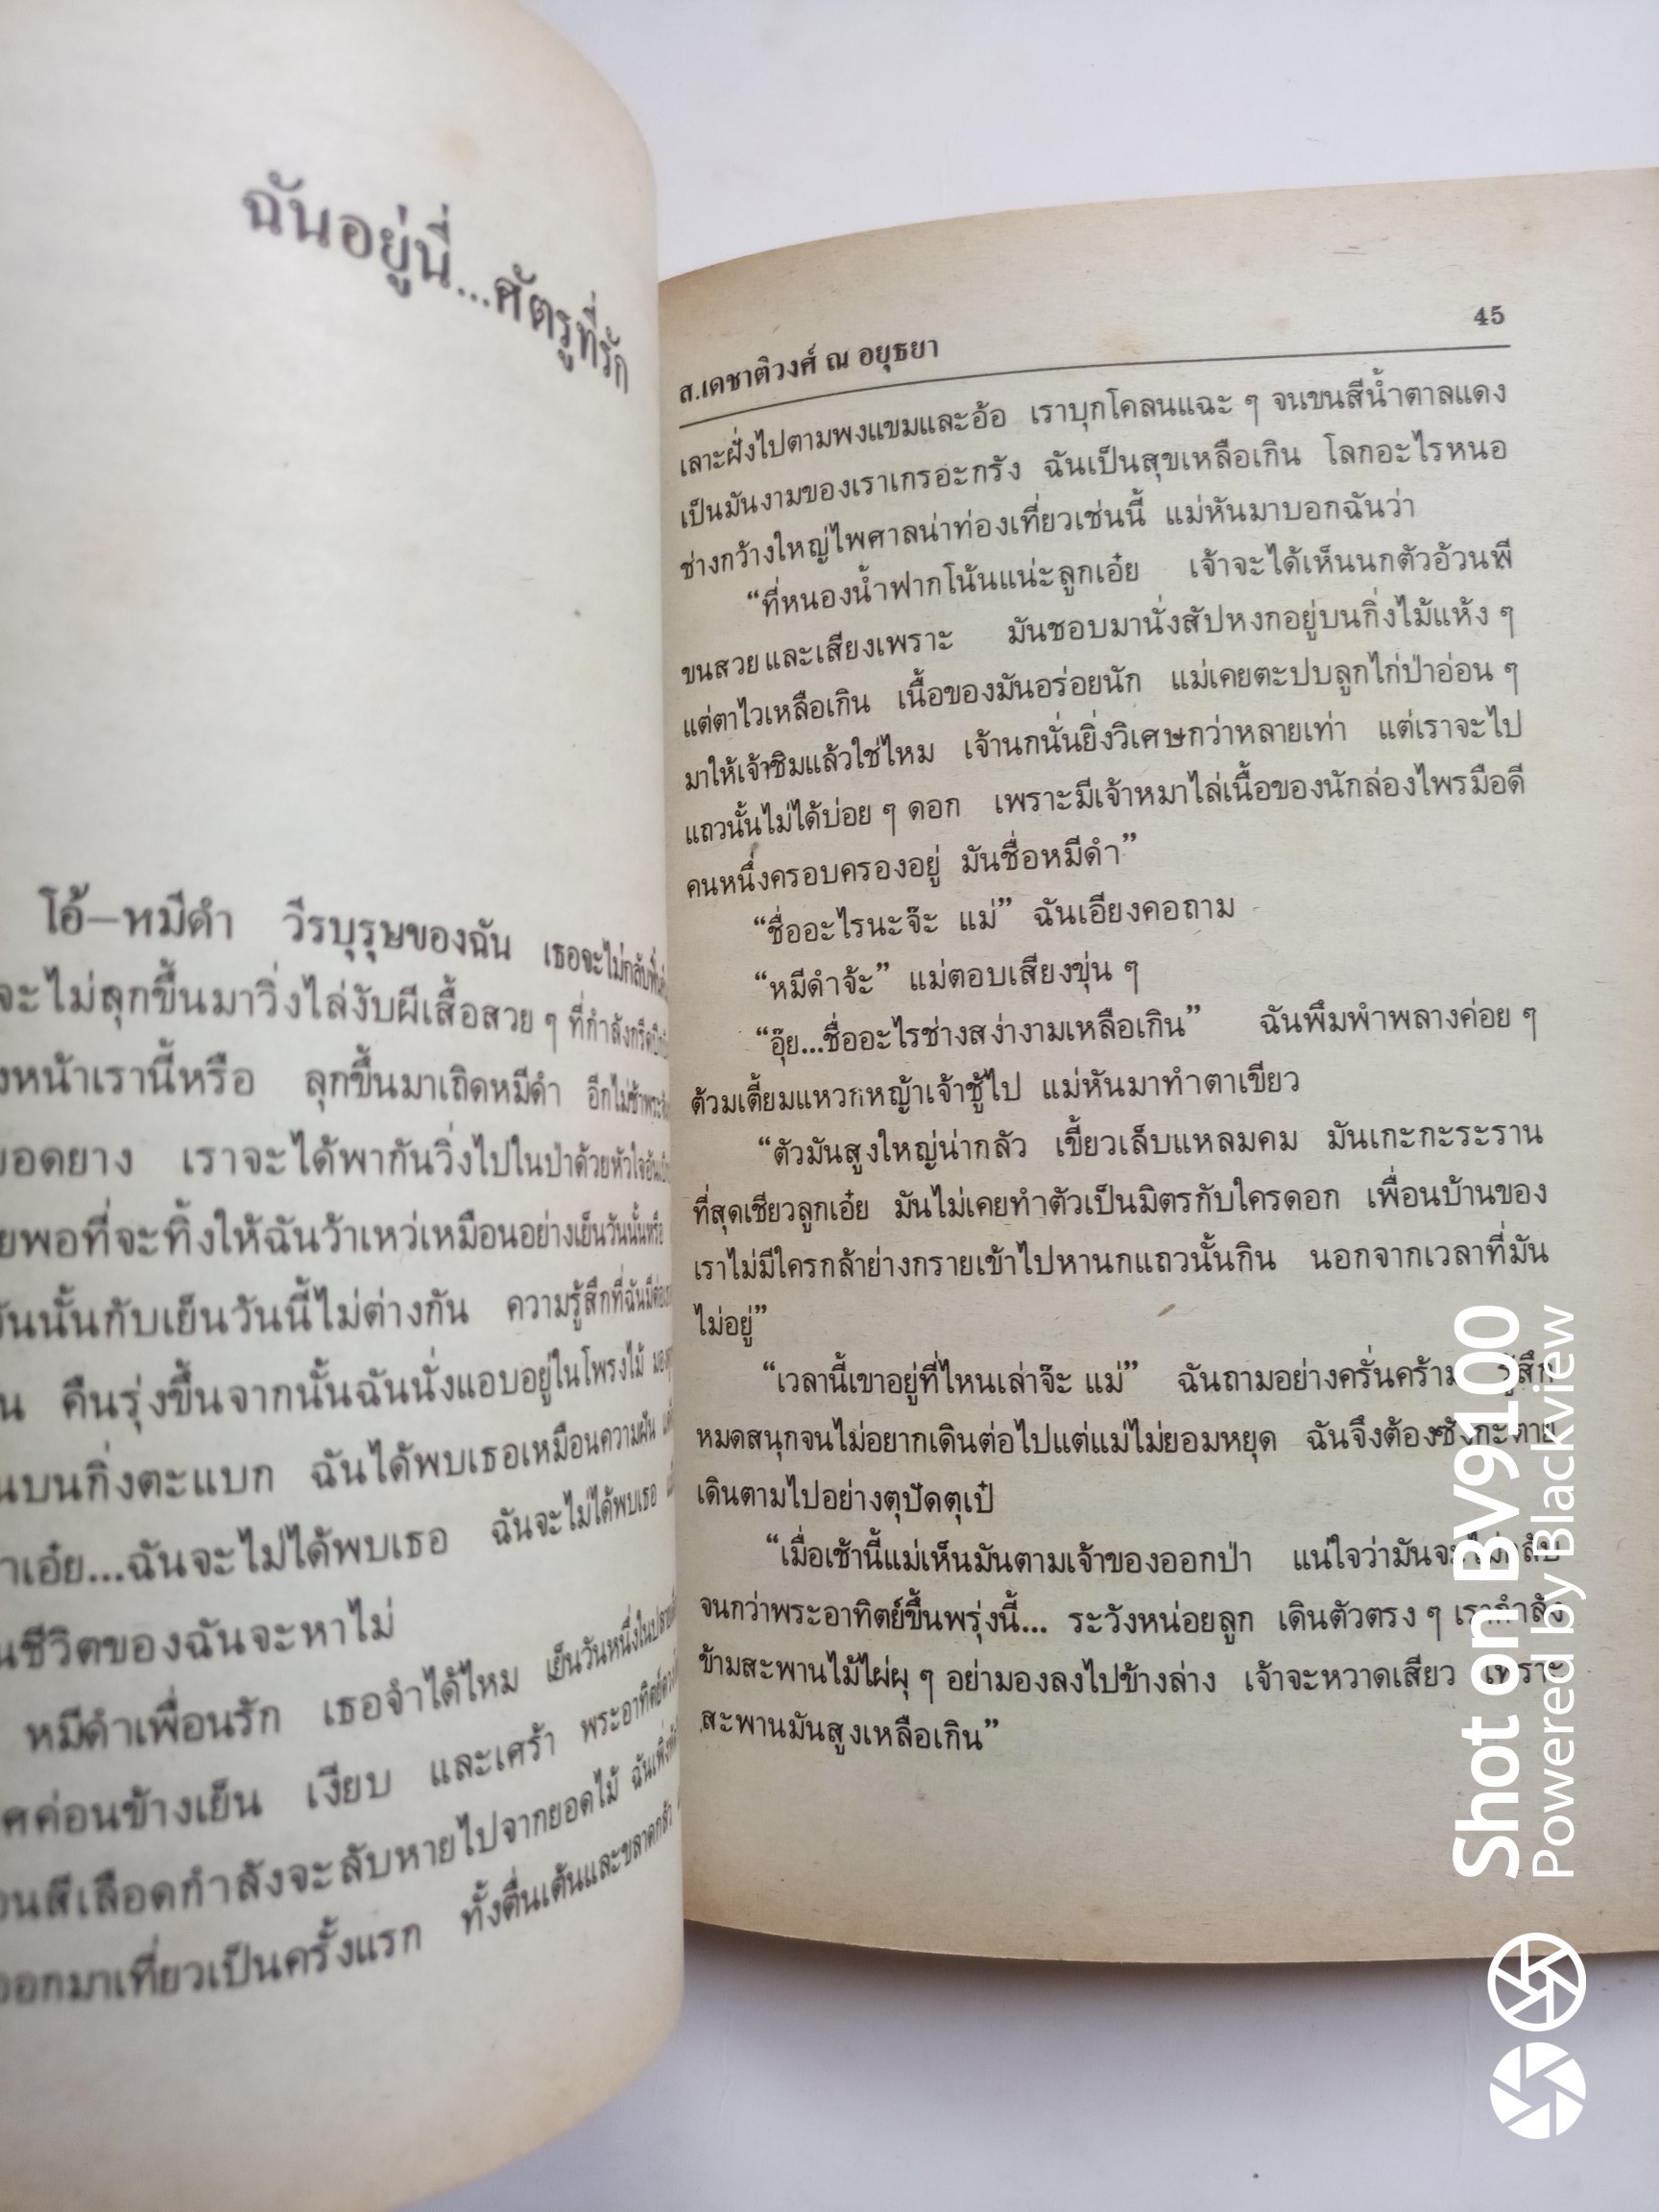 ฉันอยู่นี่...ศัตรูที่รัก
โอ้—หมีดำ วีรบุรุษของฉัน เธอจะไม่กลับฟื้น
จะไม่ลุกขึ้นมาวิ่งไล่งับผีเสื้อสวย ๆ ที่กำลังกรีดปีก
หน้าเรานี้หรือ ลุกขึ้นมาเถิดหมีดำ อีกไม่ช้าพระ
ยอดยาง เราจะได้พากันวิ่งไปในป่าด้วยหัวใจอัน
พอที่จะทิ้งให้ฉันว้าเหว่เหมือนอย่างเย็นวันนั้นหรือ
วันนั้นกับเย็นวันนี้ไม่ต่างกัน ความรู้สึกที่ฉันมีต่อ
คืนรุ่งขึ้นจากนั้นฉันนั่งแอบอยู่ในโพรงไม้
บนกิ่งตะแบก ฉันได้พบเธอเหมือนความฝัน
เอ๋ย...ฉันจะไม่ได้พบเธอ ฉันจะไม่ได้พบเธอ
ชีวิตของฉันจะหาไม่
หมีดำเพื่อนรัก เธอจำได้ไหม เย็นวันหนึ่งในปลาย
ค่อนข้างเย็น เงียบ และเศร้า พระอาทิตย์ดวง
สีเลือดกำลังจะลับหายไปจากยอดไม้ ฉันเพิ่ง
ออกมาเที่ยวเป็นครั้งแรก ทั้งตื่นเต้นและขลาดกลัว
ส.เดชาติวงศ์ ณ อยุธยา 45
เลาะฝั่งไปตามพงแขมและอ้อ เราบุกโคลนแฉะ ๆ จนขนสีน้ำตาลแดง
เป็นมันงามของเราเกรอะกรัง ฉันเป็นสุขเหลือเกิน โลกอะไรหนอ
ช่างกว้างใหญ่ไพศาลน่าท่องเที่ยวเช่นนี้ แม่หันมาบอกฉันว่า
“ที่หนองน้ำฟากโน้นแน่ะลูกเอ๋ย เจ้าจะได้เห็นนกตัวอ้วนพี
ขนสวยและเสียงเพราะ มันชอบมานั่งสัปหงกอยู่บนกิ่งไม้แห้ง ๆ
แต่ตาไวเหลือเกิน เนื้อของมันอร่อยนัก แม่เคยตะปบลูกไก่ป่าอ่อน ๆ
มาให้เจ้าชิมแล้วใช่ไหม เจ้านกนั่นยิ่งวิเศษกว่าหลายเท่า แต่เราจะไป
แถวนั้นไม่ได้บ่อย ๆ ดอก เพราะมีเจ้าหมาไล่เนื้อของนักล่องไพรมือดี
คนหนึ่งครอบครองอยู่ มันชื่อหมีดำ”
“ชื่ออะไรนะจ๊ะ แม่” ฉันเอียงคอถาม
“หมีดำจ้ะ” แม่ตอบเสียงขุ่น ๆ
“อุ๊ย...ชื่ออะไรช่างสง่างามเหลือเกิน” ฉันพึมพำพลางค่อย ๆ
ต้วมเตี้ยมแหวกหญ้าเจ้าชู้ไป แม่หันมาทำตาเขียว
“ตัวมันสูงใหญ่น่ากลัว เขี้ยวเล็บแหลมคม มันเกะกะระราน
ที่สุดเชียวลูกเอ๋ย มันไม่เคยทำตัวเป็นมิตรกับใครดอก เพื่อนบ้านของ
เราไม่มีใครกล้าย่างกรายเข้าไปหานกแถวนั้นกิน นอกจากเวลาที่มัน
ไม่อยู่”
“เวลานี้เขาอยู่ที่ไหนเล่าจ๊ะ แม่” ฉันถามอย่างครั่นคร้าม รู้สึก
หมดสนุกจนไม่อยากเดินต่อไปแต่แม่ไม่ยอมหยุด ฉันจึงต้องซังกะตาย
เดินตามไปอย่างตุปัดตุเป๋
“เมื่อเช้านี้แม่เห็นมันตามเจ้าของออกป่า แน่ใจว่ามันจะไม่กลับ
จนกว่าพระอาทิตย์ขึ้นพรุ่งนี้... ระวังหน่อยลูก เดินตัวตรง ๆ เรากำลัง
ข้ามสะพานไม้ไผ่ผุ ๆ อย่ามองลงไปข้างล่าง เจ้าจะหวาดเสียว เพราะ
สะพานมันสูงเหลือเกิน”
Shot on BV9100
Powered by Blackview